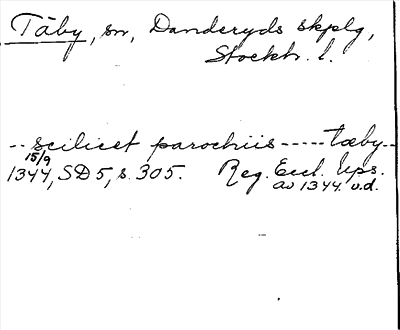 Täby, sn, Danderyds skplg,
Stockh. l.
-- scilicet parochiis ----- tæby --
15/9
1344, SD 5, s. 305. Reg. Eccl. Ups.
av 1344. v.d.